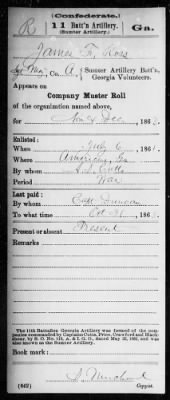 (Confederate.)
R 11 Batt'n. Artillery Ga.
(Sumter Artillery.)
James F. Ross
Co. A, Sumter Artillery Batt'n, Georgia Volunteers.
Appears on
Company Muster Roll
of the organization named above,
for Nov & Dec, 186
Enlisted:
When July 6, 186
Where Americus, Ga
By whom A. S. Cutts
Period War
Last paid:
By whom Capt Duncan
To what time Oct 31, 186
Present or absent Present
Remarks:
The 11th Battalion Georgia Artillery was formed of the companies commanded by Captains Cutts, Price, Crawford and Blackshear, by S. O. No. 118, A. & I. G. O., dated May 22, 1862, and was also known as the Sumter Artillery.
Book mark:
(642) Copyist.